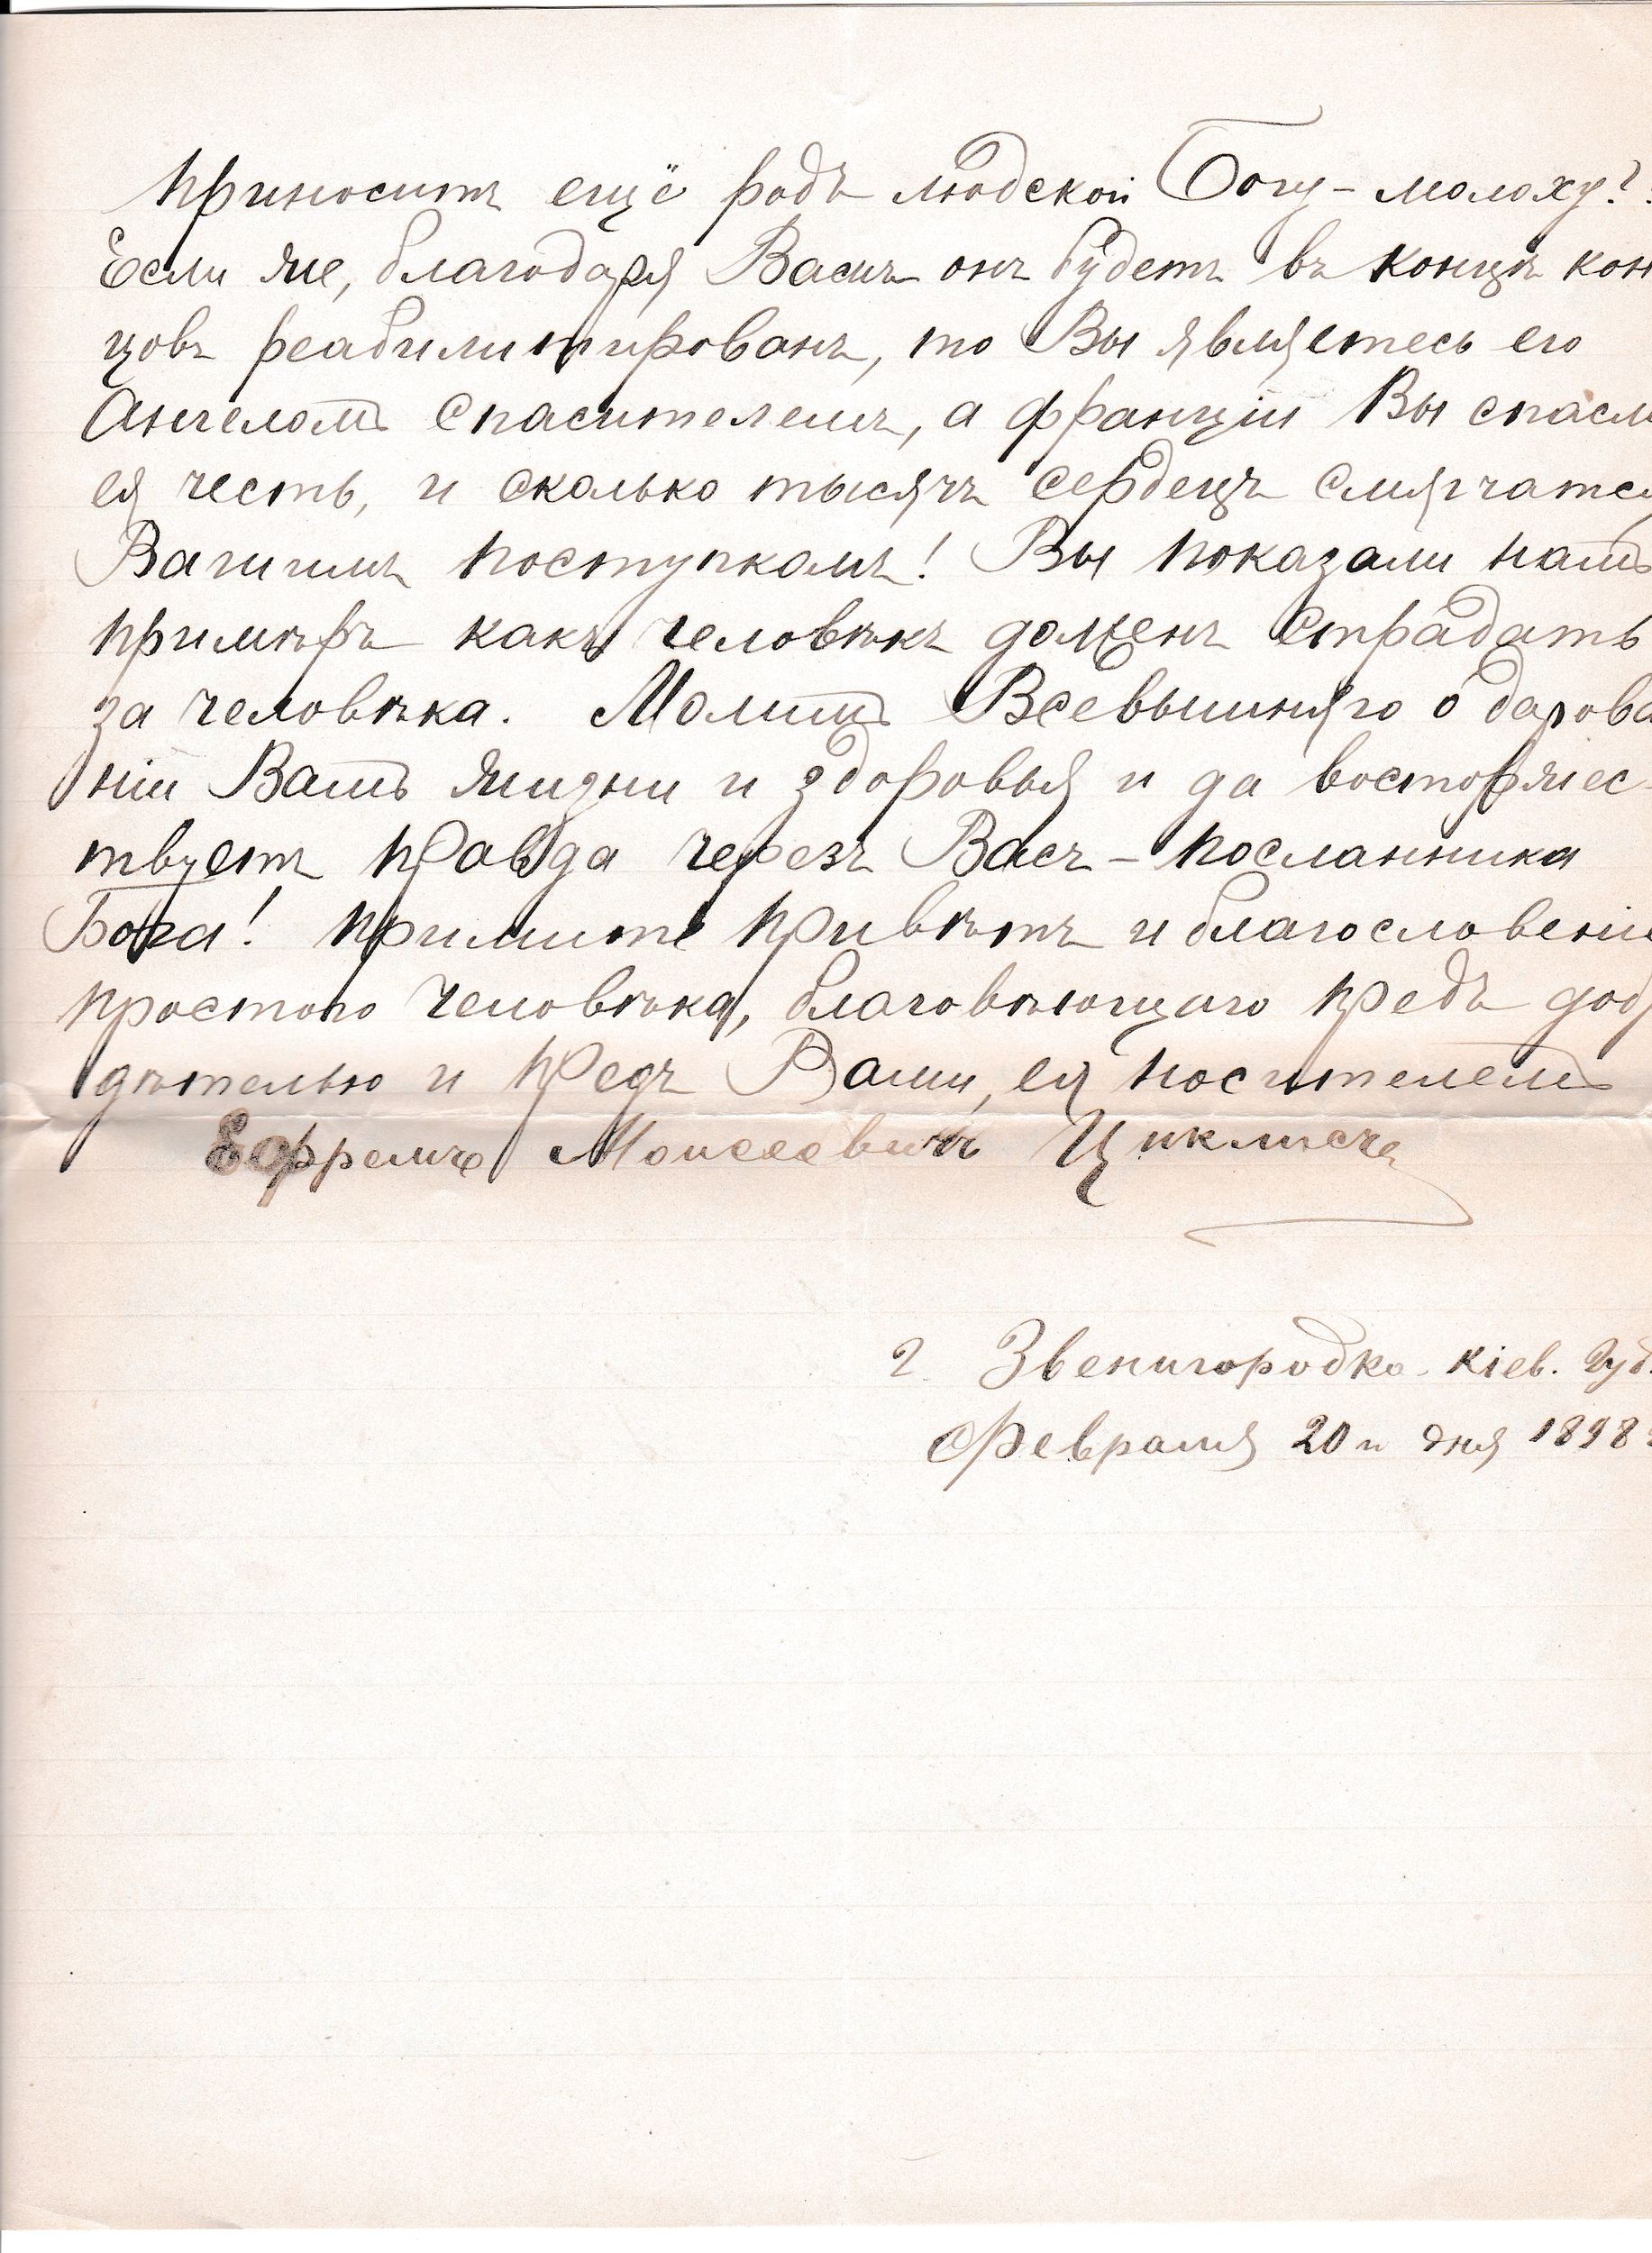 приноситъ ещё родъ людской Богу-молоху?
Если же, благодаря Вамъ онъ будетъ въ концѣ кон
цовъ реабилитированъ, то Вы являетесь его
Ангеломъ Спасителемъ, а францiи Вы спасли
ея честь, и сколько тысячъ сердецъ смягчатся
Вашимъ поступкомъ! Вы показали намъ
примѣръ какъ человѣкъ долженъ страдать
за человѣка. Молимъ Всевышняго о дарова
нiи Вамъ жизни и здоровья и да восторжес-
твуетъ правда черезъ Васъ - посланника
Бога! примите привѣтъ и благословенiе
простого человѣка, благовѣющаго предъ доб
дѣтелью и предъ Вами, ея носителемъ
Ефремъ Моисеевичъ
г. Звенигородка. Кiев. Губ.
Февраля 20 дня 1898